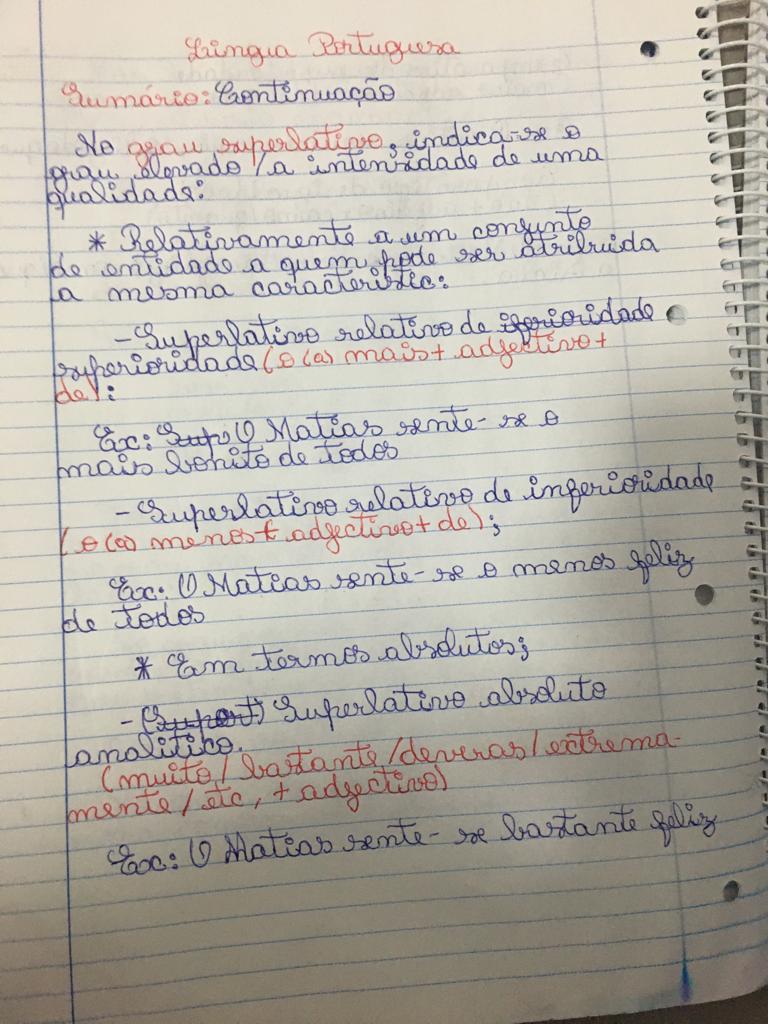 Língua Portuguesa
Sumário: Continuação
No grau superlativo, indica-se o
grau elevado / a intensidade de uma
qualidade:
* Relativamente a um conjunto
de entidade a quem pode ser atribuida
a mesma caracteristic:
- Superlativo relativo de
superioridade (o (a) mais + adjectivo +
de) :
Ex: Sup O Matias sente-se o
mais bonito de todos
- Superlativo relativo de inferioridade
(o (a) menos + adjectivo + de);
Ex: O Matias sente-se o menos feliz
de todos
* Em termos absolutos;
- Superlativo absoluto
analítico.
(muito / bastante / deveras / extrema-
mente / etc, + adjectivo)
Ex: O Matias sente-se bastante feliz